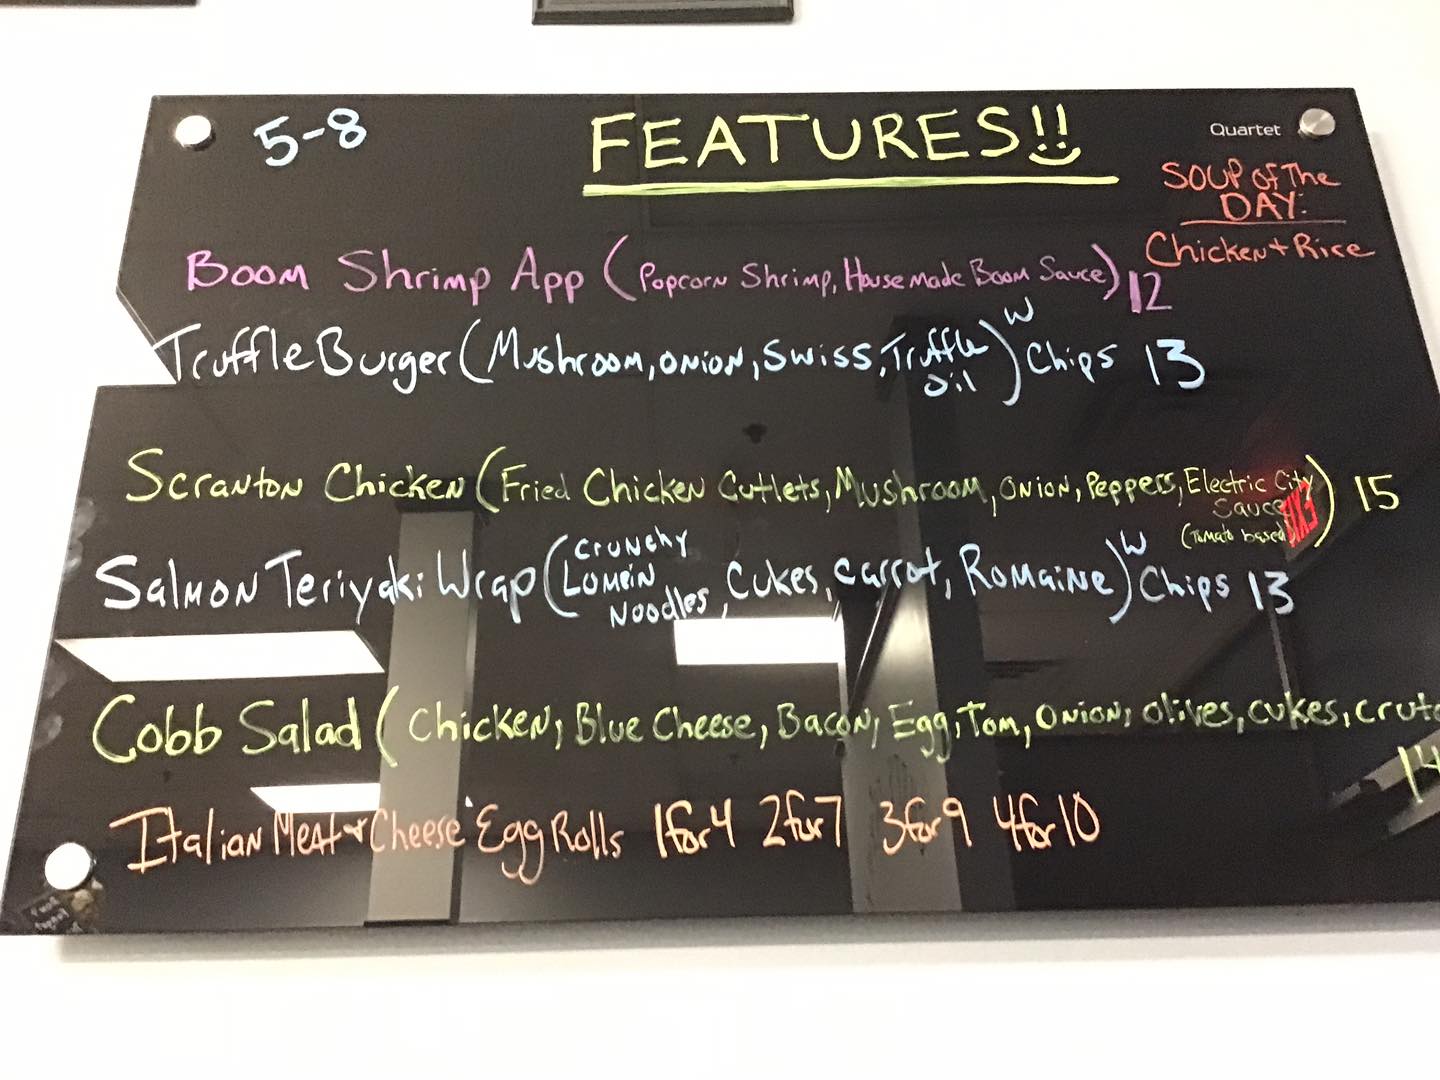 5-8
FEATURES!!
Quartet
SOUP of The
DAY:
Chicken + Rice
Boom Shrimp App (Popcorn Shrimp, Housemade Boom Sauce) 12
Truffle Burger (Mushroom, onion, Swiss, Truffle Oil) W Chips 13
Scranton Chicken (Fried Chicken Cutlets, Mushroom, onion, Peppers, Electric City Sauce (Tomato based)) 15
Salmon Teriyaki Wrap (Crunchy Lomein Noodles, Cukes, carrot, Romaine) W Chips 13
Cobb Salad (Chicken, Blue Cheese, Bacon, Egg, Tom, Onion, olives, cukes, cruto
14
Italian Meat & Cheese Egg Rolls 1 for 4 2 for 7 3 for 9 4 for 10